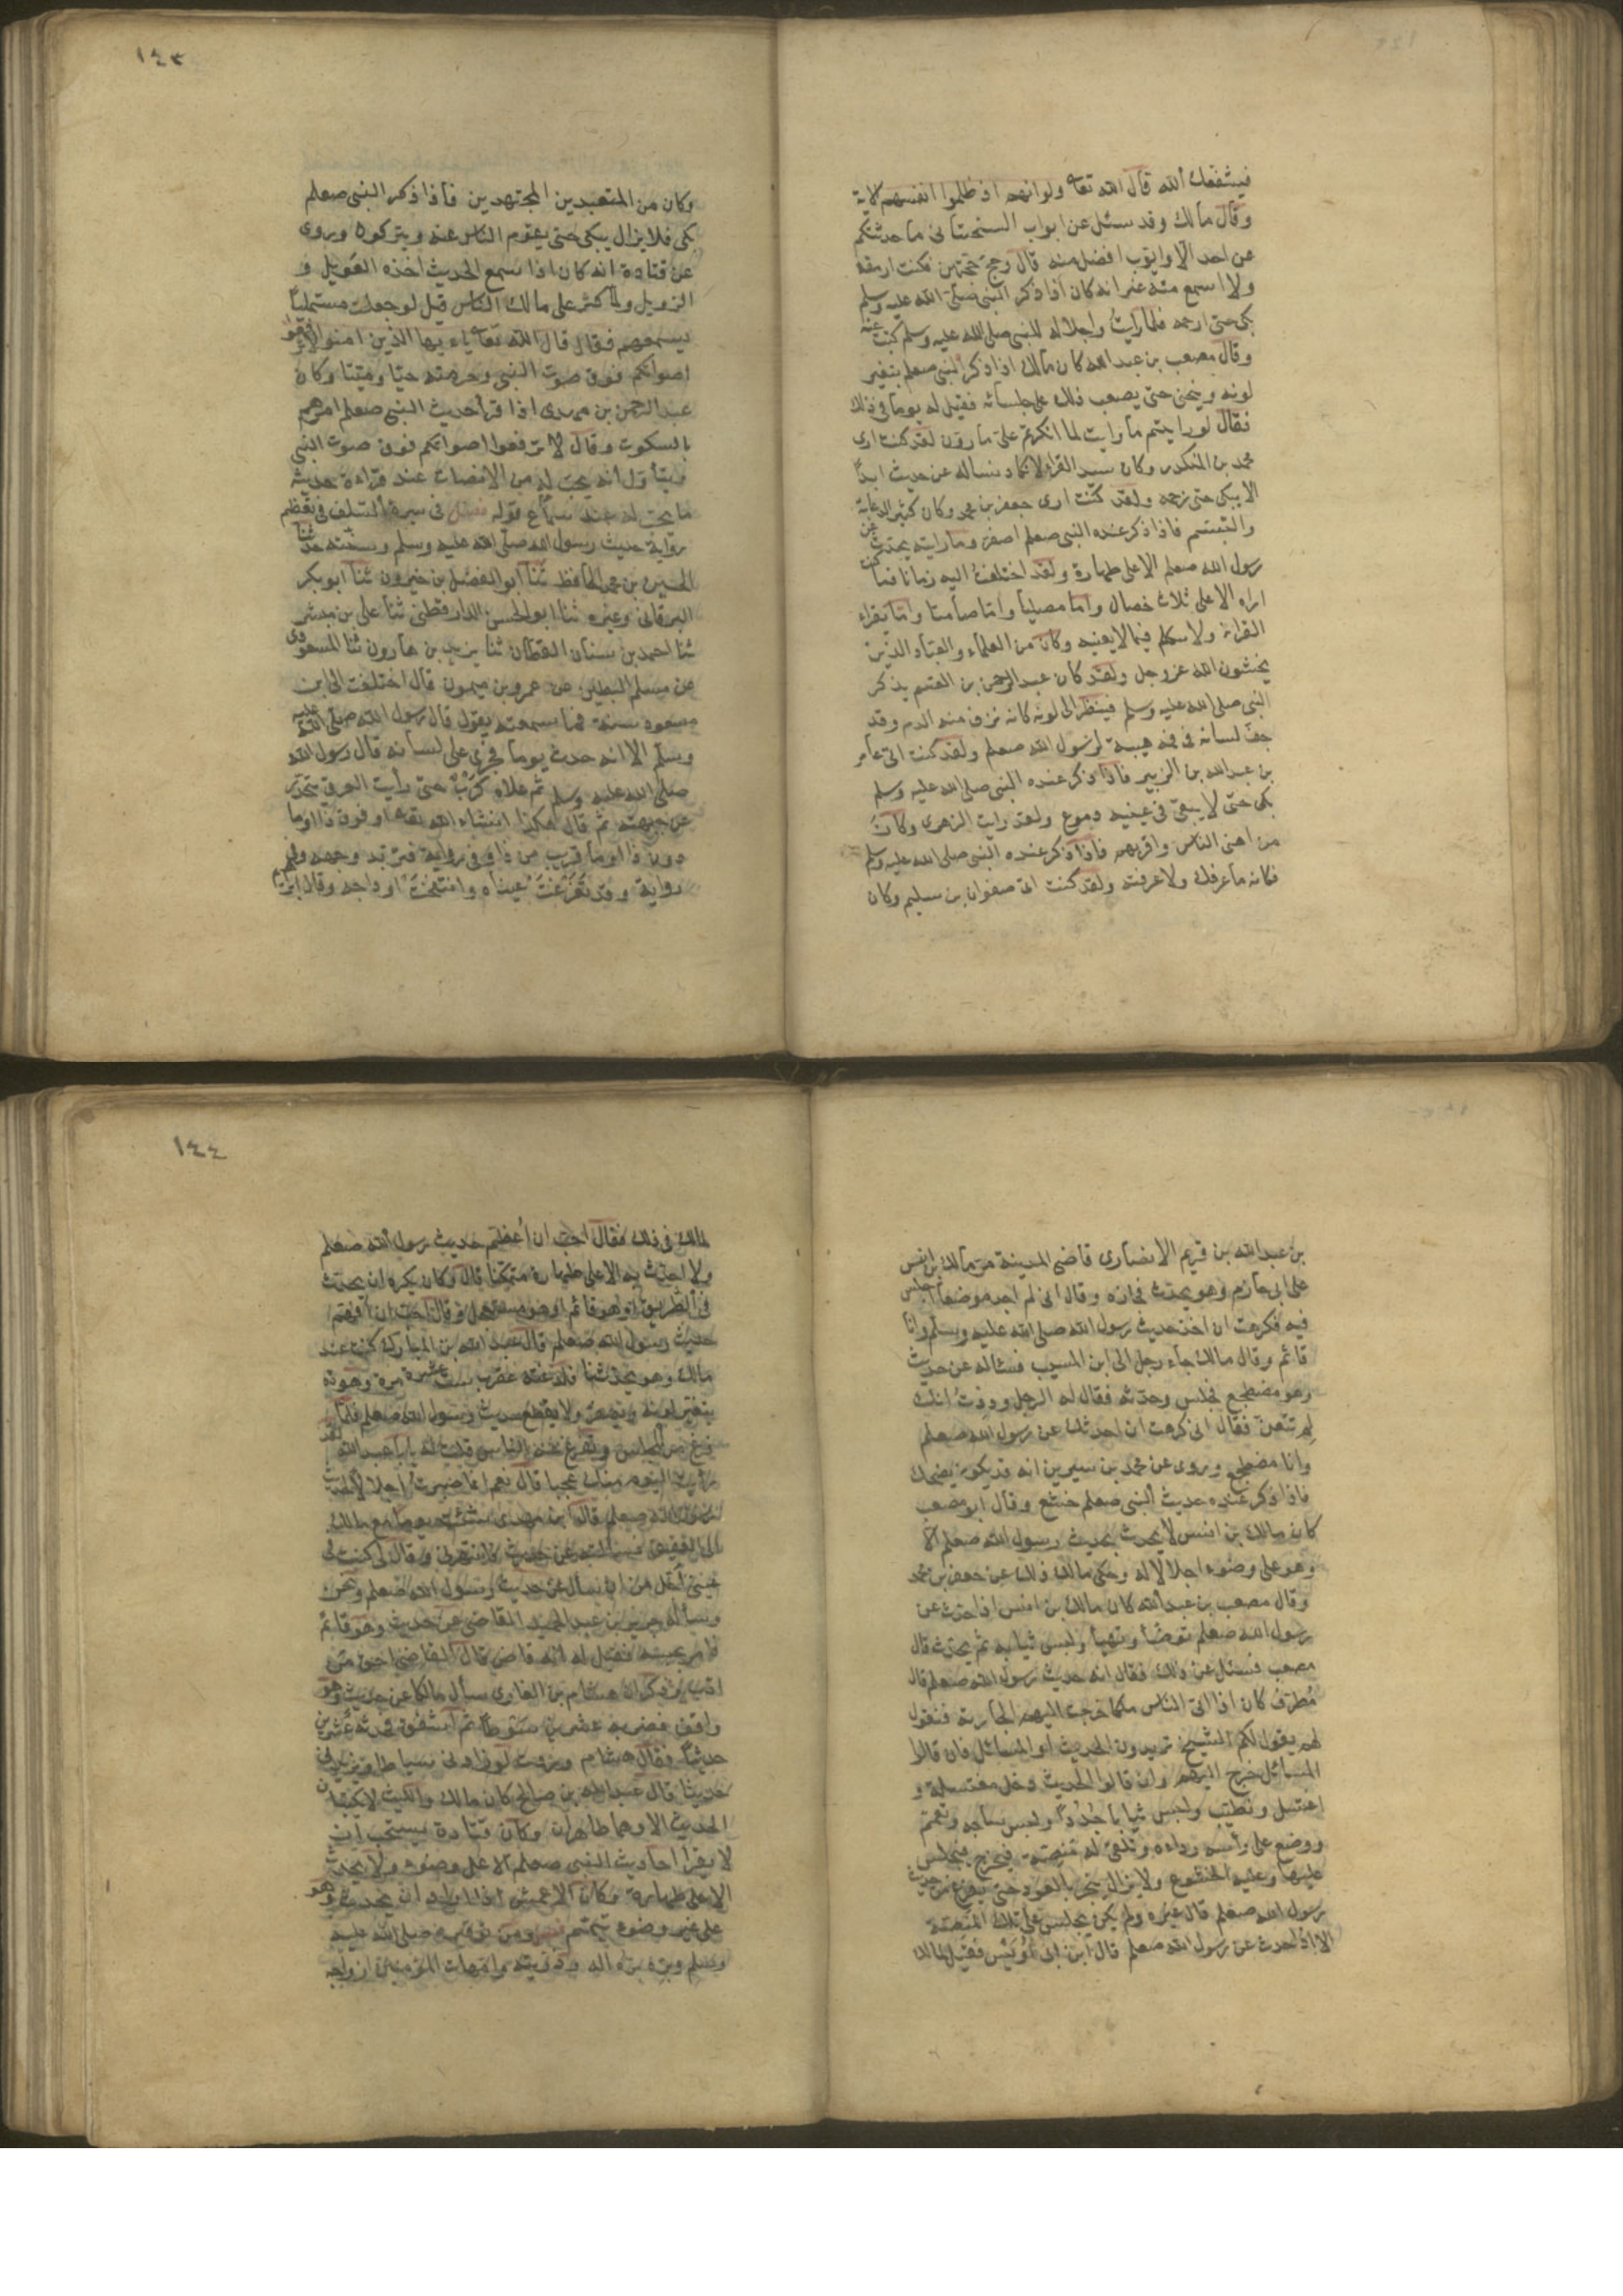 فيشفعك الله قال الله تعا ولو انهم اذ ظلموا انفسهم الاية
وقال مالك وقد سئل عن ايوب السختياني ما حدثتكم
عن احد الا وايوب افضل منه قال وحج حجتين فكنت ارمقه
ولا اسمع منه غير انه كان اذا ذكر النبي صلى الله عليه وسلم
بكى حتى ارحمه فلما رايت واجلاله للنبي صلى الله عليه وسلم كتبت عنه
وقال مصعب بن عبد الله كان مالك اذا ذكر النبي صعلم يتغير
لونه وينحني حتى يصعب ذلك على جلسائه فقيل له يوما في ذلك
فقال لو رايتم ما رايت لما انكرتم على ما ترون لقد كنت ارى
محمد بن المنكدر وكان سيد القراء لا نكاد نساله عن حديث ابدا
الا يبكي حتى نرحمه ولقد كنت ارى جعفر بن محمد وكان كثير الدعابة
والتبسم فاذا ذكر عنده النبي صعلم اصفر وما رايته يحدث عن
رسول الله صعلم الا على طهارة ولقد اختلفت اليه زمانا فما كنت
اراه الا على ثلاث خصال واما مصليا واما صامتا واما يقراء
القران ولا يتكلم فيما لا يعنيه وكان من العلماء والعباد الذين
يخشون الله عز وجل ولقد كان عبد الرحمن بن القسم يذكر
النبي صلى الله عليه وسلم فينظر الى لونه كانه نزف منه الدم وقد
جف لسانه في فمه هيبة لرسول الله صعلم ولقد كنت اتى عامر
بن عبد الله بن الزبير فاذا ذكر عنده النبي صلى الله عليه وسلم
بكى حتى لا يبقى في عينيه دموع ولقد رايت الزهري وكان
من اهنى الناس واقربهم فاذا ذكر عنده النبي صلى الله عليه وسلم
فكانه ما عرفك ولا عرفته ولقد كنت اتى صفوان بن سليم وكان
١٤٣
وكان من المتعبدين المجتهدين فاذا ذكر النبي صعلم
بكى فلا يزال يبكي حتى يقوم الناس عنه ويتركوه وروى
عن قتادة انه كان اذا سمع الحديث اخذه العويل و
الزويل ولما كثر على مالك الناس قيل لو جعلت مستمليا
يسمعهم فقال قال الله تعا يا ءيها الذين امنوا لا ترفعوا
اصواتكم فوق صوت النبي وحرمته حيا وميتا وكان
عبد الرحمن بن مهدى اذا قرأ حديث النبي صعلم امرهم
بالسكوت وقال لا ترفعوا اصواتكم فوق صوت النبي
ويتأول انه يجب له من الانصات عند قراءة حديثه
ما يجب له عند سماع قوله فصل في سيرة السلف في تعظيم
رواية حديث رسول الله صلى الله عليه وسلم وسنته حدثنا
الحسين بن محمد الحافظ ثنا ابو الفضل بن خيرون ثنا ابو بكر
البرقاني وغيره ثنا ابو الحسن الدارقطني ثنا على بن مبشر
ثنا احمد بن سنان القطان ثنا يزيد بن هارون ثنا المسعودى
عن مسلم البطين عن عمرو بن ميمون قال اختلفت الى ابن
مسعود سنة فما سمعته يقول قال رسول الله صلى الله عليه
وسلم الا انه حدث يوما فجرى على لسانه قال رسول الله
صلى الله عليه وسلم ثم علاه كرب حتى رأيت العرق يتحدر
عن جبهته ثم قال هكذا انشاء الله تعا او فوق ذا او ما
دون ذا او ما قريب من ذا وفي رواية فتربد وجهه وفي
رواية وقد تغرغرت عيناه وانتفخت اوداجه وقال ابراهيم
بن عبد الله بن قريم الانصارى قاضي المدينة مر مالك بن انس
على ابي حازم وهو يحدث فجازه وقال اني لم اجد موضعا اجلس
فيه فكرهت ان اخذ حديث رسول الله صلى الله عليه وسلم وانا
قائم وقال مالك جاء رجل الى ابن المسيب فسئاله عن حديث
وهو مضطجع فجلس وحدثه فقال له الرجل وددت انك
لم تتعن فقال اني كرهت ان احدثك عن رسول الله صعلم
وانا مضطجع وروى عن محمد بن سيرين انه قد يكون يضحك
فاذا ذكر عنده حديث النبي صعلم خشع وقال ابو مصعب
كان مالك بن انس لا يحدث بحديث رسول الله صعلم الا
وهو على وضوء اجلالا له وحكى مالك ذلك عن جعفر بن محمد
وقال مصعب بن عبد الله كان مالك بن انس اذا حدث عن
رسول الله صعلم توضأ وتهيأ ولبس ثيابه ثم يحدث قال
مصعب فسئل عن ذلك فقال انه حديث رسول الله صعلم قال
مطرف كان اذا اتى الناس مالكا خرجت اليهم الجارية فتقول
لهم يقول لكم الشيخ تريدون الحديث او المسائل فان قالوا
المسائل خرج اليهم وان قالوا الحديث دخل مغتسله و
اغتسل وتطيب ولبس ثيابا جددا ولبس ساجه وتعمم
ووضع على رأسه رداءه وتلقى له منصة فيخرج فيجلس
عليها وعليه الخشوع ولا يزال يبخر بالعود حتى يفرغ من حديث
رسول الله صعلم قال غيره ولم يكن يجلس على تلك المنصة
الا اذا حدث عن رسول الله صعلم قال ابن ابي اويس فقيل لمالك
١٤٤
لمالك في ذلك فقال احب ان اعظم حديث رسول الله صعلم
ولا احدث به الا على طهارة متمكنا قال وكان يكره ان يحدث
في الطريق او هو قائم او مستعجل وقال احب ان افهم
حديث رسول الله صعلم قال عبد الله بن المبارك كنت عند
مالك وهو يحدثنا فلدغته عقرب ست عشرة مرة وهو
يتغير لونه ويصفر ولا يقطع حديث رسول الله صعلم فلما
فرغ من المجلس وتفرغ عنه الناس قلت له يا ابا عبد الله لقد
رأيت اليوم منك عجبا قال نعم انما صبرت اجلالا لحديث
رسول الله صعلم قال ابن مهدى مشيت يوما مع مالك
الى العقيق فسالته عن حديث فانتهرني وقال لي كنت في
عيني اجل من ان تسأل عن حديث رسول الله صعلم ونحن
وسأله جرير بن عبد الحميد القاضي عن حديث وهو قائم
فامر بحبسه فقيل له انه قاض قال القاضي احق من
ادب وذكر ان هشام بن الغازى سأل مالكا عن حديث وهو
واقف فضربه عشرين سوطا ثم اشفق فحدثه عشرين
حديثا فقال هشام وددت لو زادني سياطا ويزيدني
حديثا قال عبد الله بن صالح كان مالك والليث لا يكتبان
الحديث الا وهما طاهران وكان قتادة يستحب ان
لا يقرا احاديث النبي صعلم الا على وضوء ولا يحدث
الا على طهارة وكان الاعمش اذا اراد ان يحدث وهو
على غير وضوء تيمم فصل ومن توقيره صلى الله عليه
وسلم وبره بره اله وذريته وامهات المؤمنين ازواجه